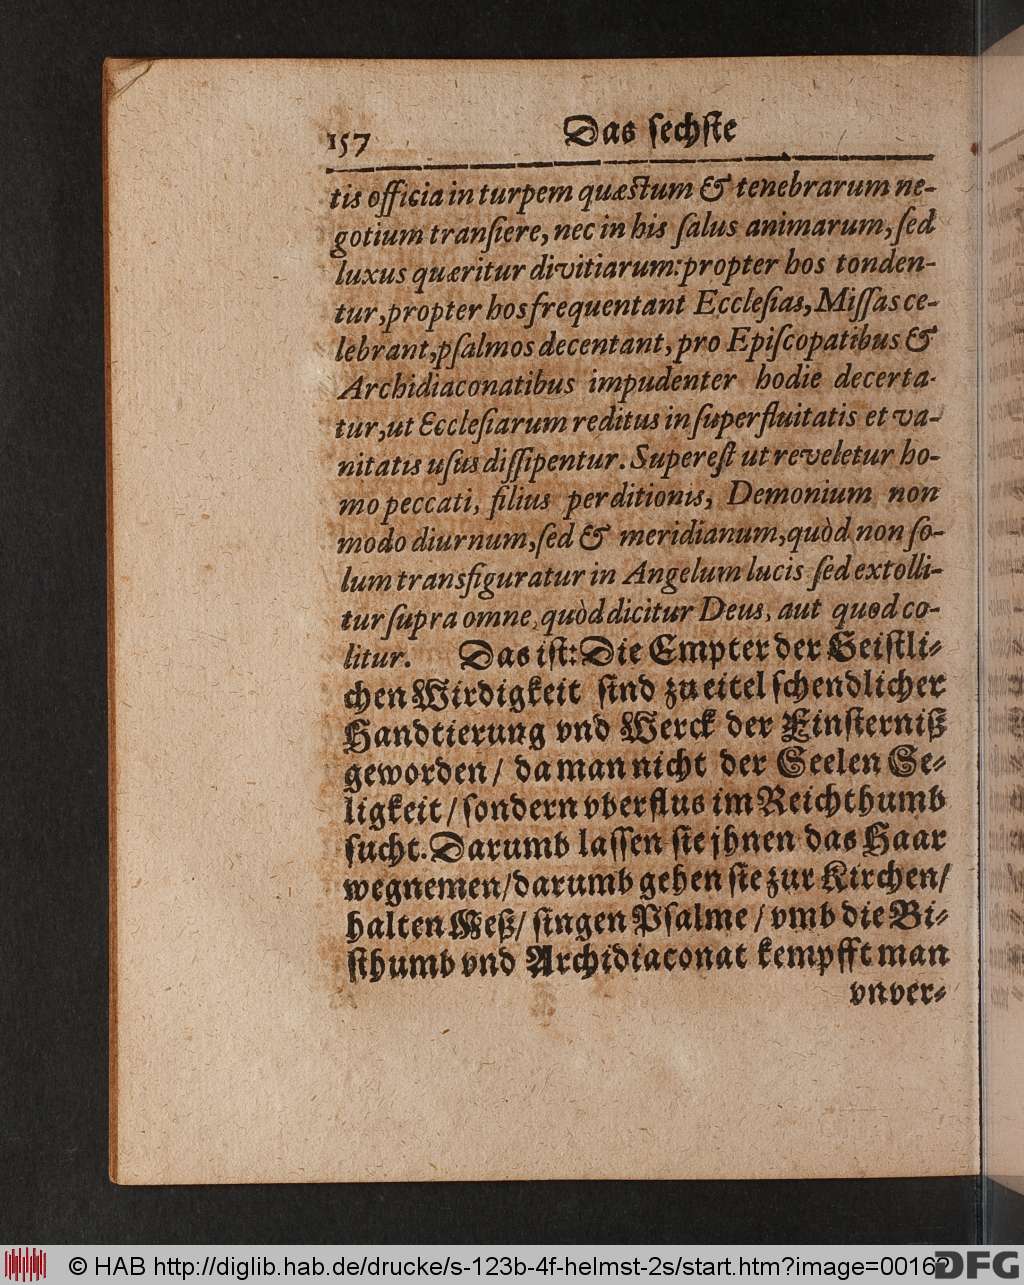 157 Das sechste
tis officia in turpem quæstum & tenebrarum ne-
gotium transiere, nec in his salus animarum, sed
luxus quæritur divitiarum: propter hos tonden-
tur, propter hos frequentant Ecclesias, Missas ce-
lebrant, psalmos decentant, pro Episcopatibus &
Archidiaconatibus impudenter hodie decerta-
tur, ut Ecclesiarum reditus in superfluitatis et va-
nitatis usus dissipentur. Superest ut reveletur ho-
mo peccati, filius perditionis, Demonium non
modo diurnum, sed & meridianum, quòd non so-
lum transfiguratur in Angelum lucis sed extolli-
tur supra omne, quòd dicitur Deus, aut quod co-
litur. Das ist: Die Empter der Geistli-
chen Wirdigkeit sind zu eitel schendlicher
Handtierung vnd Werck der Finsterniß
geworden / da man nicht der Seelen Se-
ligkeit / sondern vberflus im Reichthumb
sucht. Darumb lassen sie jhnen das Haar
wegnemen / darumb gehen sie zur Kirchen /
halten Meß / singen Psalme / vmb die Bi-
sthumb vnd Archidiaconat kempfft man
vnver-
© HAB http://diglib.hab.de/drucke/s-123b-4f-helmst-2s/start.htm?image=00162
DFG